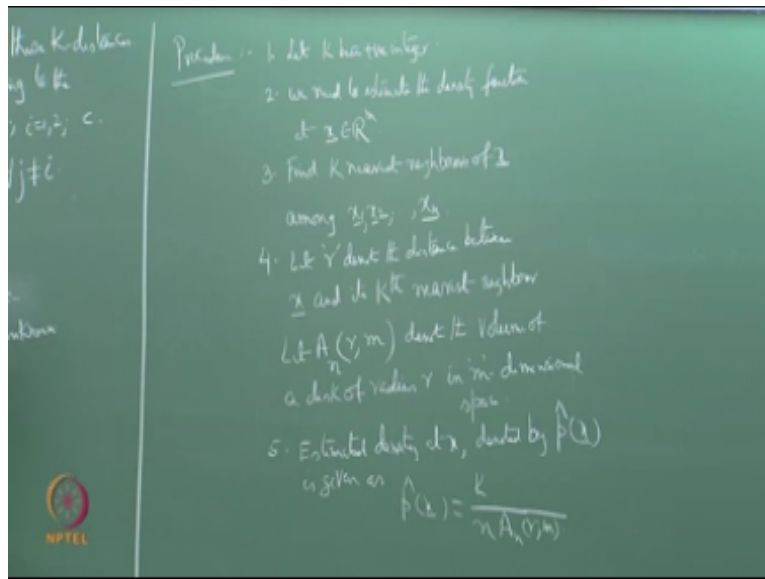 these K distances
ng to the
, i=1,2, c.
∀ j≠i
unknown
Procedure :- 1. Let K be a +ve integer.
2. we need to estimate the density function
at x ∈ ℝᵐ
3. Find K nearest neighbors of x
among x₁, x₂, , xₙ.
4. Let 'r' denote the distance between
x and its Kth nearest neighbor
Let Aₙ(r, m) denote the volume of
a disk of radius r in 'm' dimensional
space.
5. Estimated density at x, denoted by p̂(x)
is given as p̂(x) = K / n Aₙ(r, m)
NPTEL